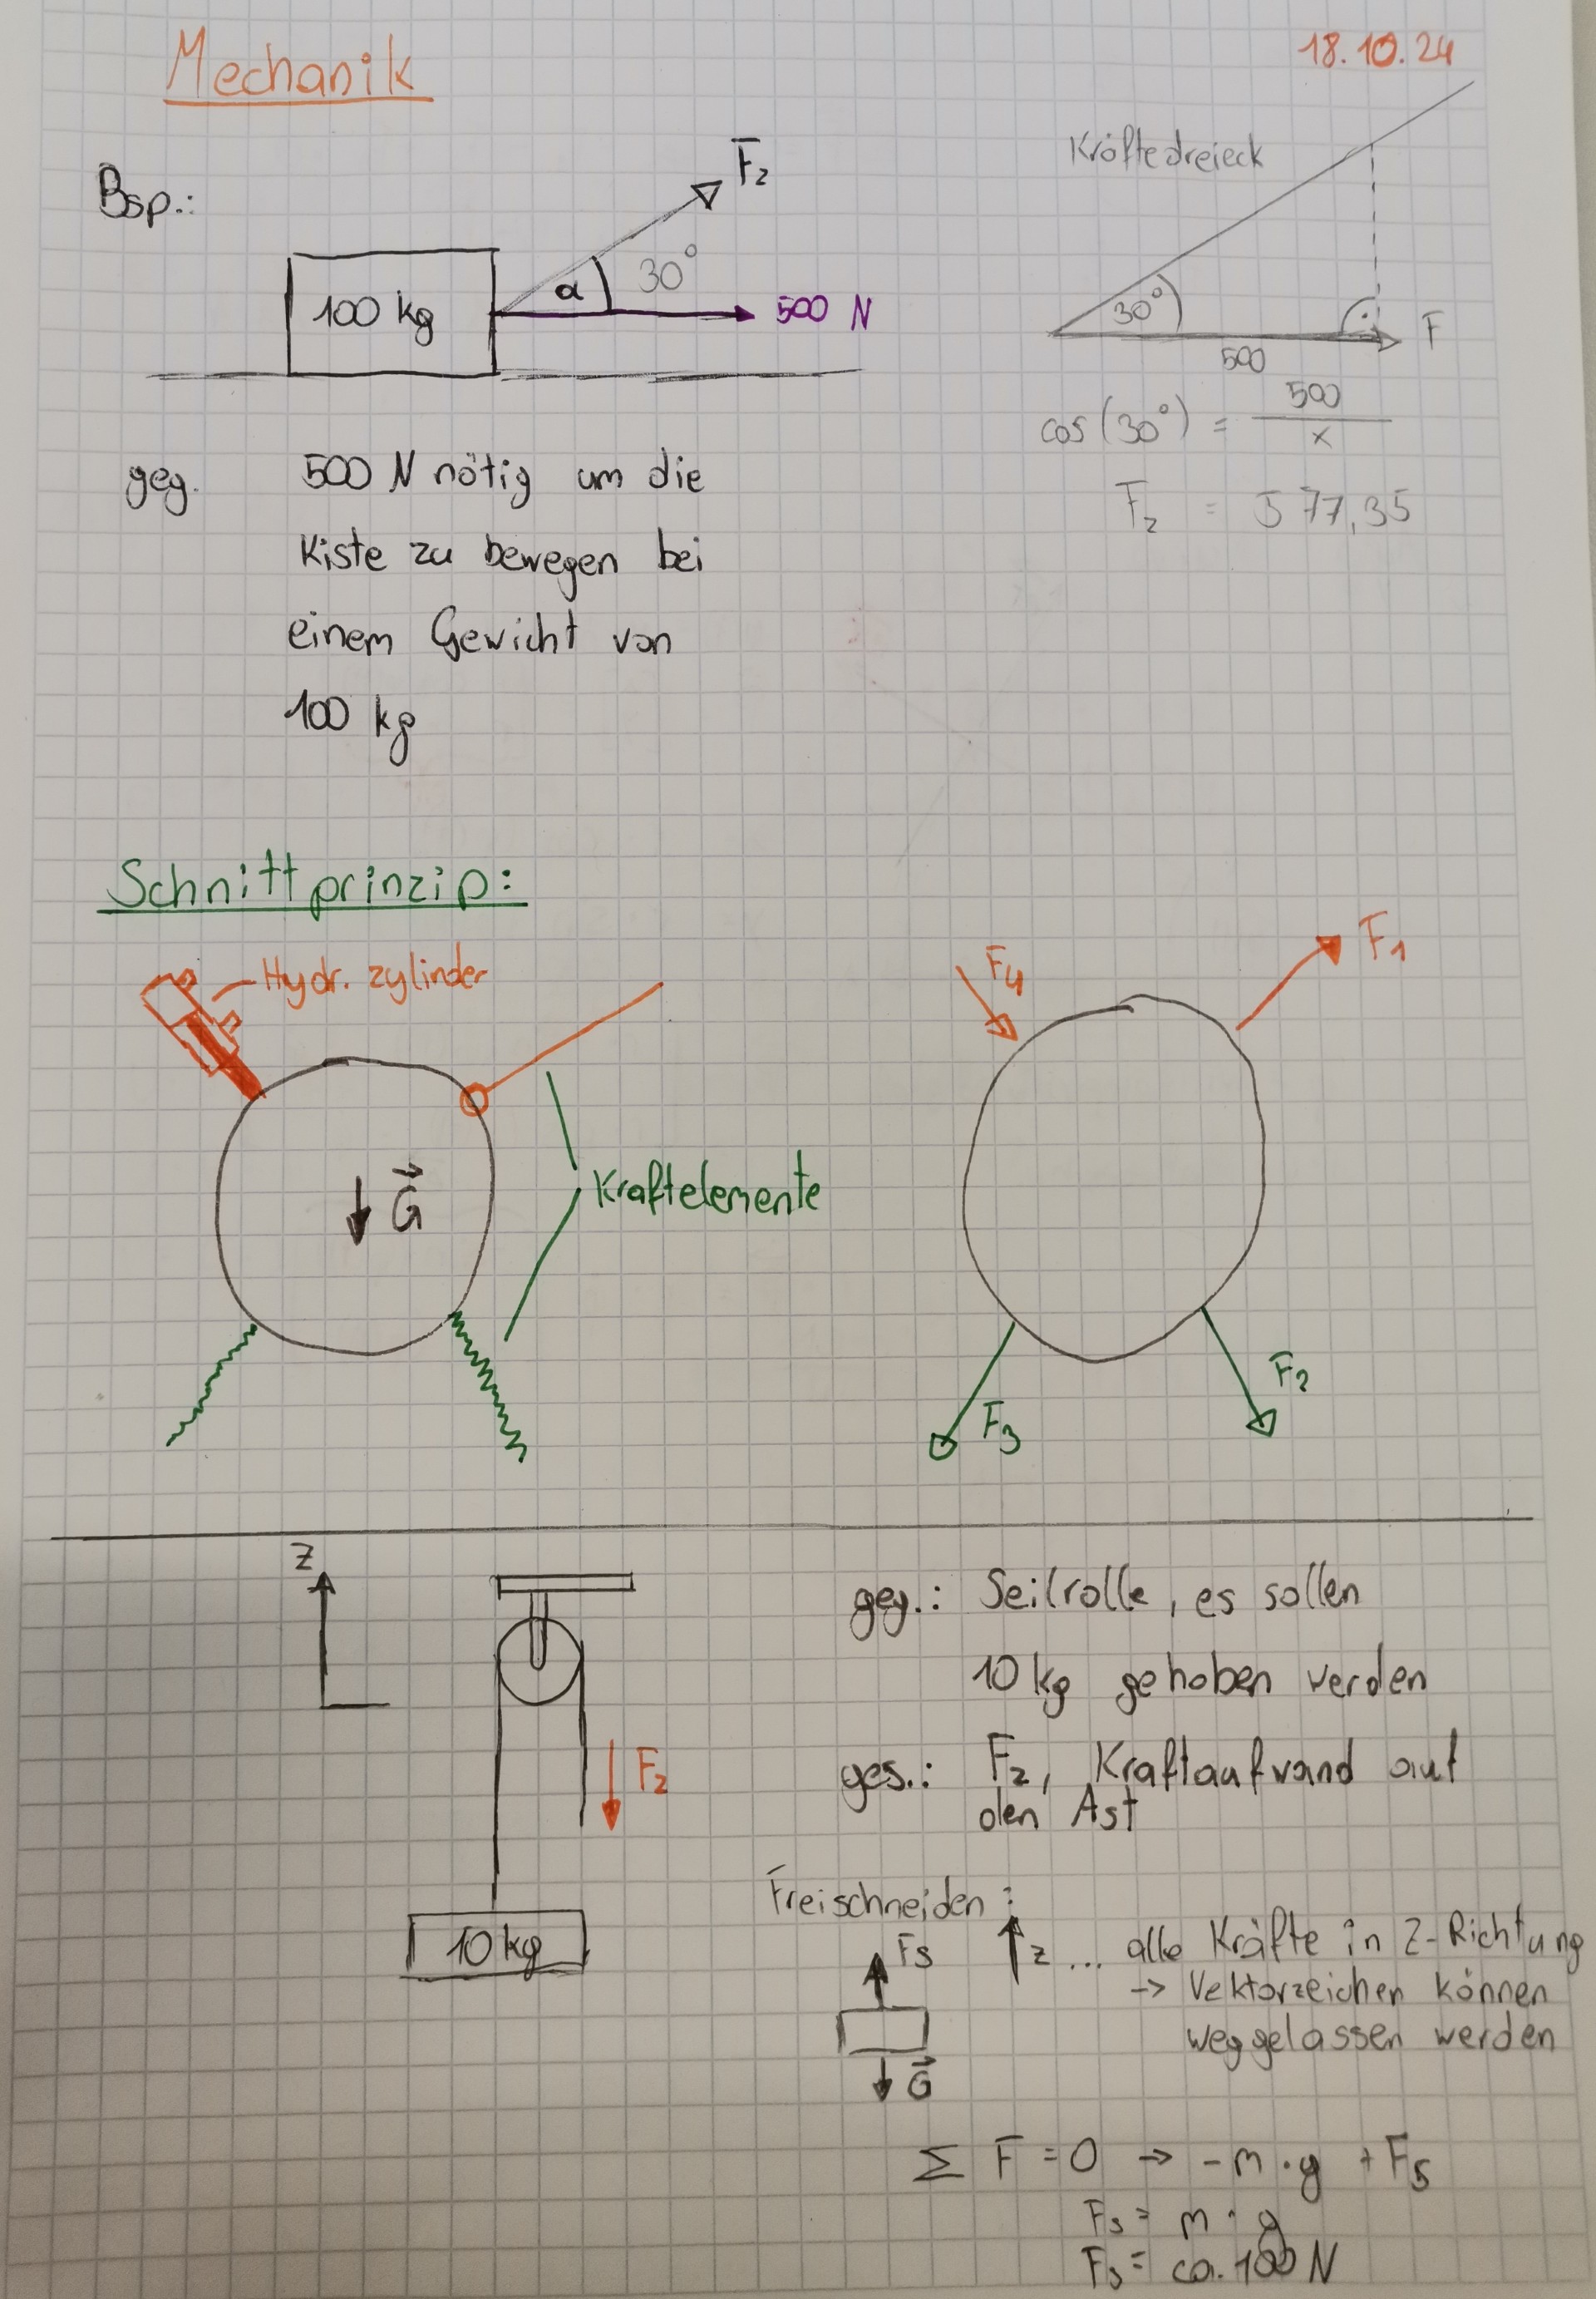 Mechanik
18.10.24
Bsp.:
F₂
α 30°
100 kg
500 N
Kräftedreieck
30°
F
500
cos(30°) = 500 / x
F₂ = 577,35
geg. 500 N nötig um die
Kiste zu bewegen bei
einem Gewicht von
100 kg
Schnittprinzip:
Hydr. zylinder
G⃗
Kraftelemente
F₄
F₁
F₃
F₂
z
F₂
10 kg
geg.: Seilrolle, es sollen
10 kg gehoben werden
ges.: F₂, Kraftaufwand auf
den Ast
Freischneiden:
Fs
G⃗
z ... alle Kräfte in Z-Richtung
-> Vektorzeichen können
weggelassen werden
Σ F = 0 -> -m · g + Fs
Fs = m · g
Fs = ca. 100 N